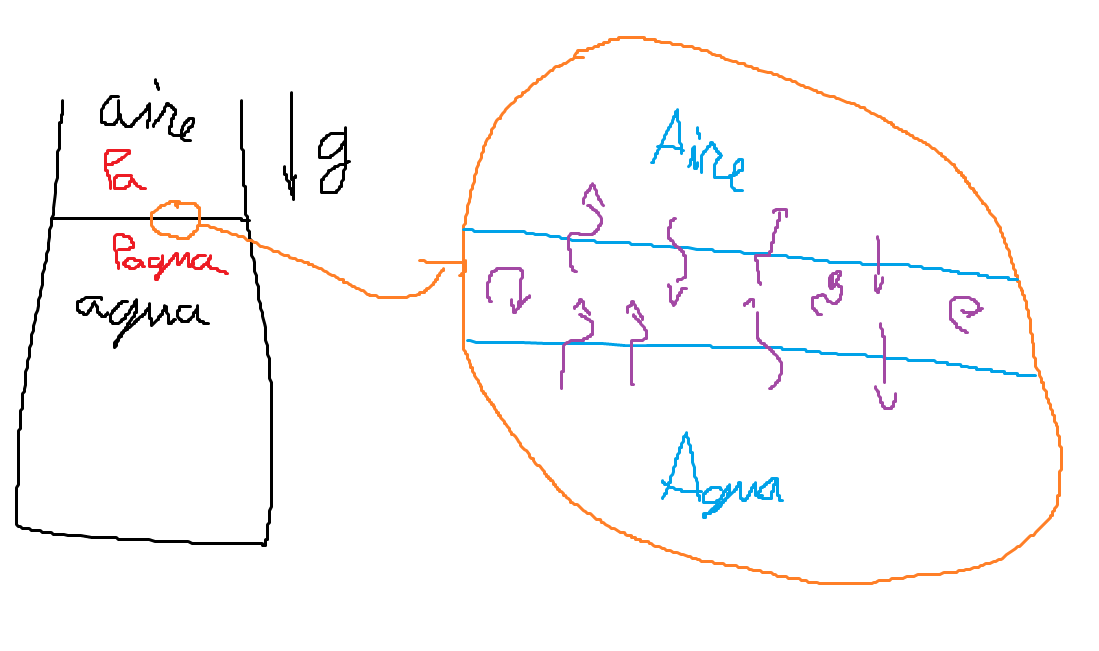 aire
g
Pa
Pagua
agua
Aire
Agua